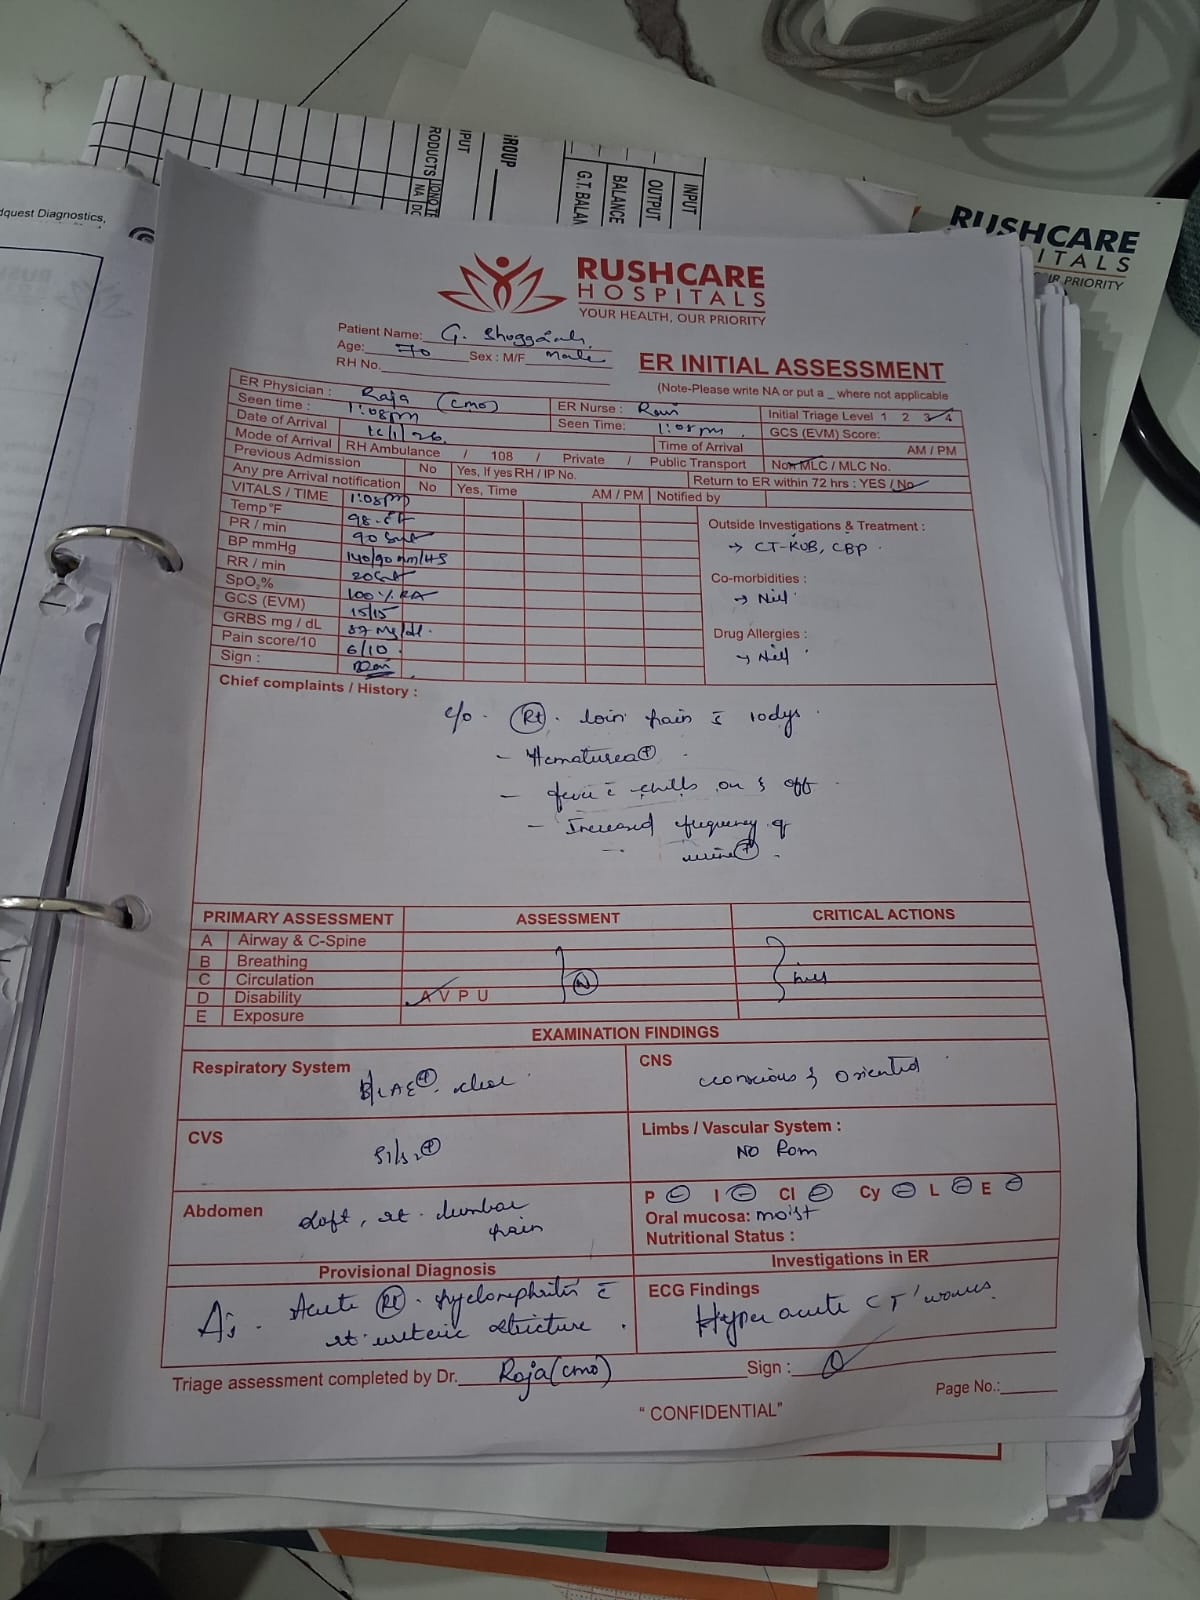 dquest Diagnostics,
RODUCTS
IPUT
GROUP
NA
G.T. BALAN
BALANCE
OUTPUT
INPUT
RUSHCARE
ITALS
UR PRIORITY
RUSHCARE
HOSPITALS
YOUR HEALTH, OUR PRIORITY
Patient Name: G.
Age: 70 Sex : M/F Male
RH No.
ER INITIAL ASSESSMENT
(Note-Please write NA or put a _ where not applicable
ER Physician : Raja (CMO) ER Nurse : Ravi Initial Triage Level 1 2 3 4
Seen time : 1:08pm Seen Time: 1:08pm GCS (EVM) Score:
Date of Arrival /1/26. Time of Arrival AM / PM
Mode of Arrival RH Ambulance / 108 / Private / Public Transport Non MLC / MLC No.
Previous Admission No Yes, If yes RH / IP No. Return to ER within 72 hrs : YES / No
Any pre Arrival notification No Yes, Time AM / PM Notified by
VITALS / TIME 1:08pm
Temp°F 98.
PR / min 90
BP mmHg 140/90 mm/HS
RR / min 20
SpO₂% 100% RA
GCS (EVM) 15/15
GRBS mg / dL 87 mg/dl.
Pain score/10 6/10
Sign :
Outside Investigations & Treatment :
→ CT-KUB, CBP.
Co-morbidities :
→ Nill
Drug Allergies :
→ Nill
Chief complaints / History :
c/o. (Rt). loin pain 10dys
- Hematurea (+)
- fever c̄ chills on & off
- Increased frequency of
urine (+).
PRIMARY ASSESSMENT ASSESSMENT CRITICAL ACTIONS
A Airway & C-Spine
B Breathing
C Circulation
D Disability A V P U
E Exposure
(N)
EXAMINATION FINDINGS
Respiratory System B/LAE (+). clear
CNS conscious & oriented
CVS S1/S2 (+)
Limbs / Vascular System :
NO Rom
Abdomen soft, rt. lumbar
pain
P (-) I (-) Cl (-) Cy (-) L (-) E (-)
Oral mucosa: moist
Nutritional Status :
Provisional Diagnosis
Investigations in ER
Acute (Rt). pyelonephritis c̄
rt. uteric stricture.
ECG Findings
Hyper acute 'T' waves.
Triage assessment completed by Dr. Raja (CMO) Sign :
Page No.:
“ CONFIDENTIAL”